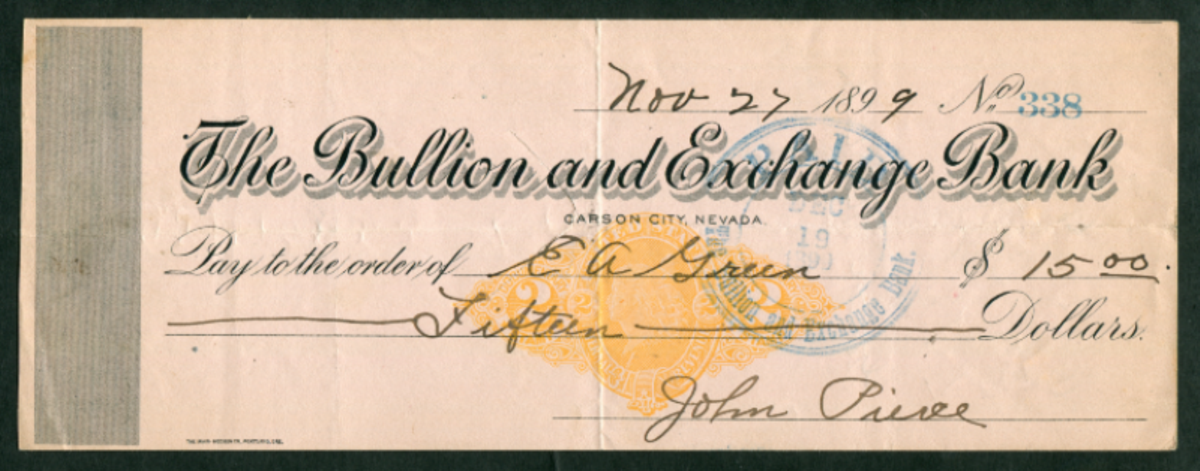 Nov 27 1899 No. 338
The Bullion and Exchange Bank
CARSON CITY, NEVADA.
Pay to the order of E A Green $ 15 00.
Fifteen Dollars.
John Pierce
PAID
DEC
19
Bullion and Exchange Bank.
2 2